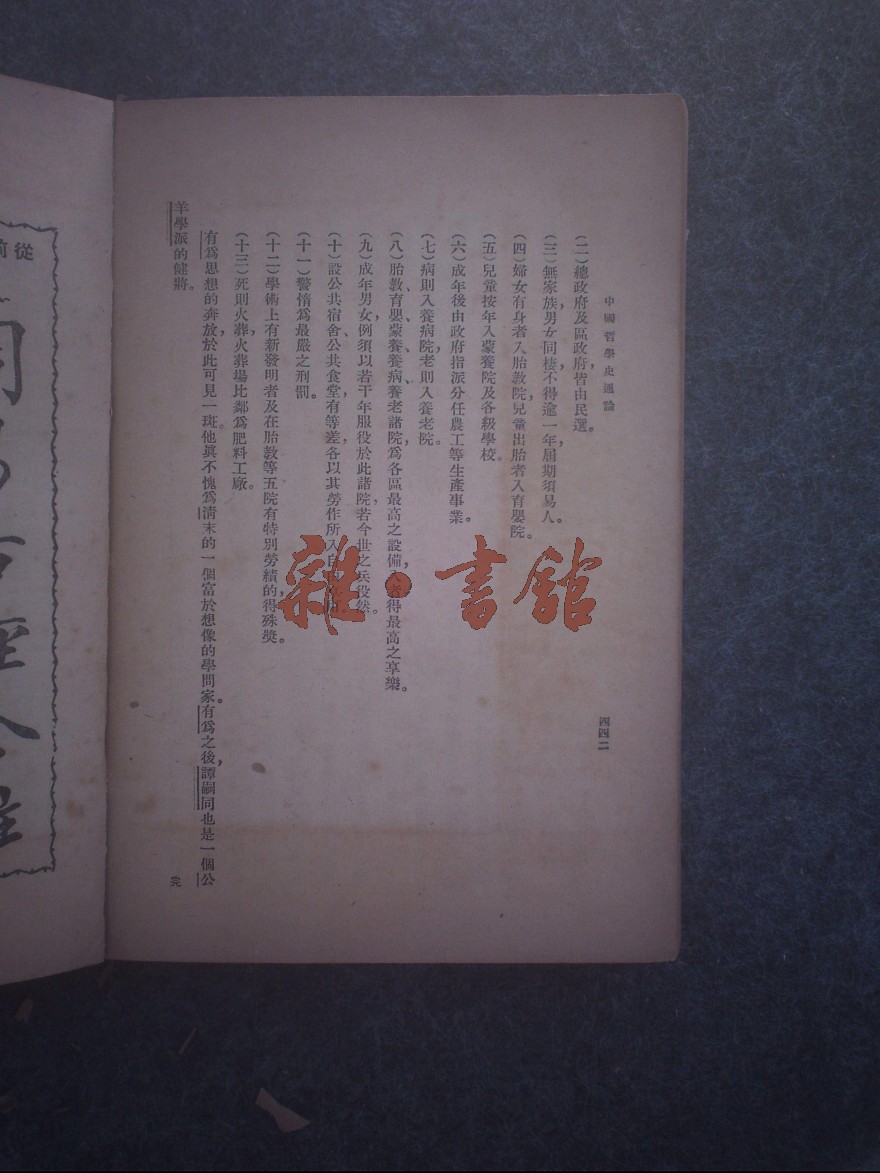 中國哲學史通論
四四二
(二)總政府及區政府,皆由民選。
(三)無家族,男女同棲,不得逾一年,屆期須易人。
(四)婦女有身者入胎教院,兒童出胎者入育嬰院。
(五)兒童按年入蒙養院及各級學校。
(六)成年後由政府指派分任農工等生產事業。
(七)病則入養病院,老則入養老院。
(八)胎教、育嬰、蒙養、養病、養老諸院,爲各區最高之設備,入者得最高之享樂。
(九)成年男女,例須以若干年服役於此諸院,若今世之兵役然。
(十)設公共宿舍、公共食堂,有等差,各以其勞作所入自
(十一)警惰爲最嚴之刑罰。
(十二)學術上有新發明者及在胎教等五院有特別勞績的,得殊獎。
(十三)死則火葬,火葬場比鄰爲肥料工廠。
有爲思想的奔放,於此可見一斑。他眞不愧爲清末的一個富於想像的學問家。有爲之後,譚嗣同也是一個公
羊學派的健將。
完
從前
雜·書館